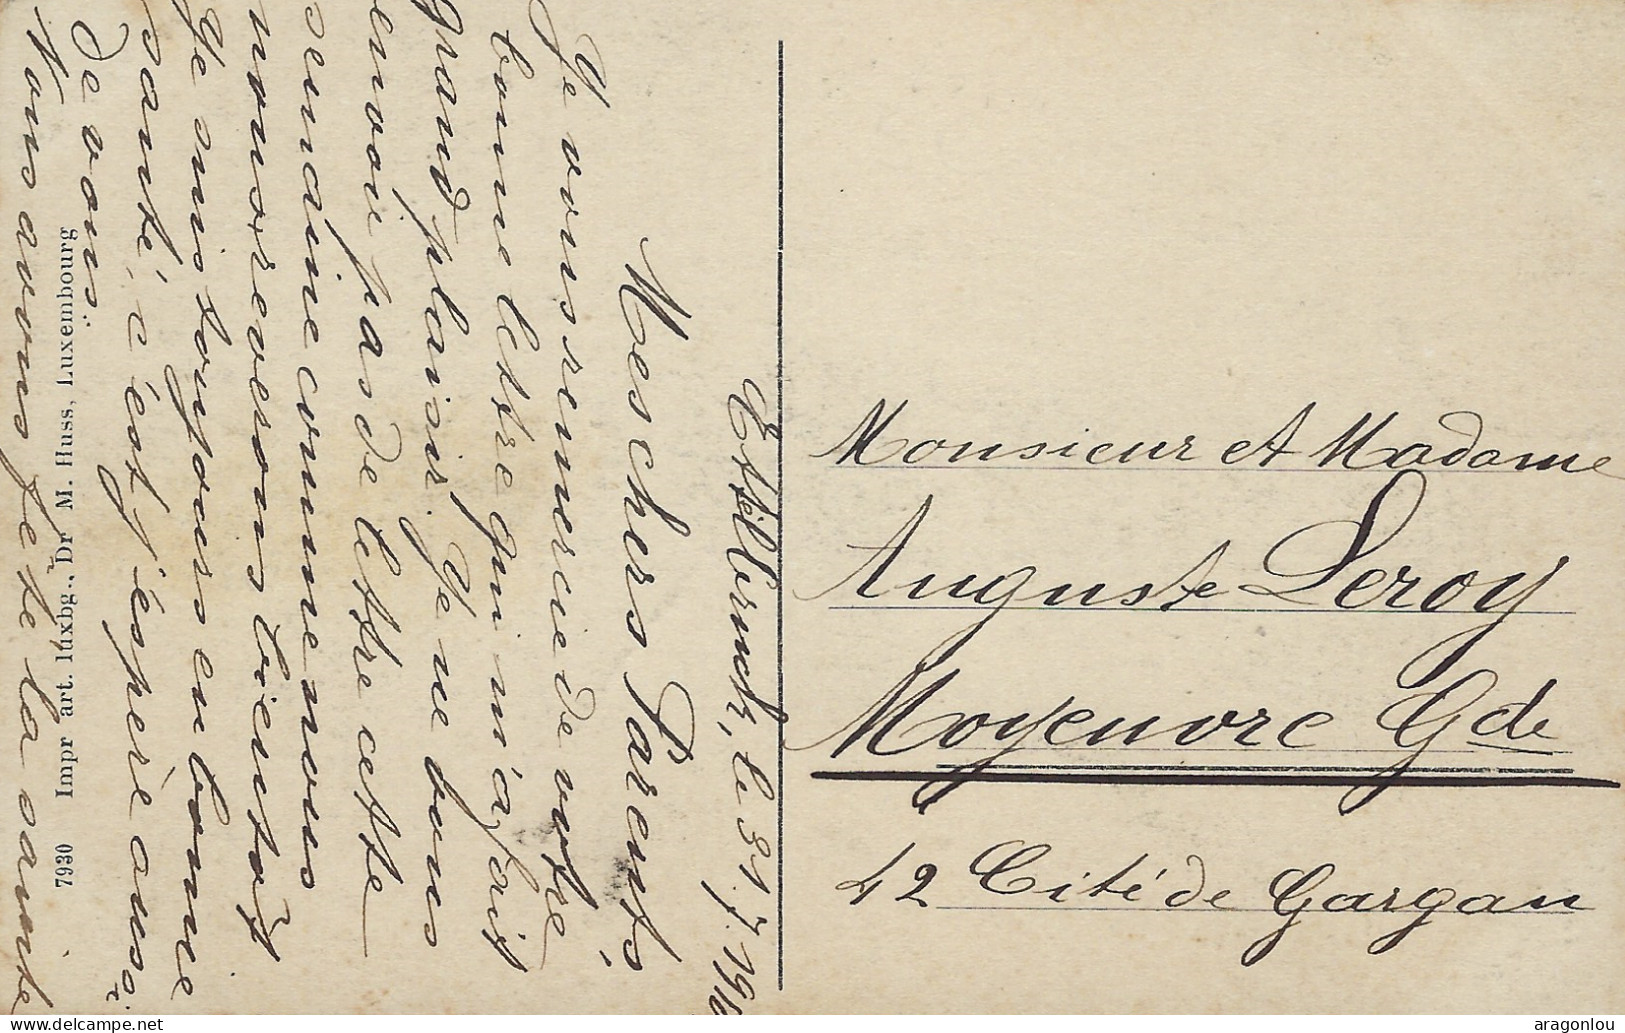 Ettelbruck, le 31.7.1910
Mes chers Parents
Je vous remercie de votre
bonne lettre qui m'a fait
grand plaisir. Je ne vous
envoie pas de lettre cette
semaine comme nous
nous reverons bientôt
Je suis toujours en bonne
santé, c'est j'espère aussi
de vous.
Nous avons fêté la sainte
7930 Impr art. luxbg., Dr M. Huss, Luxembourg
Monsieur et Madame
Auguste Leroy
Moyeuvre Gde
42 Cité de Gargan
aragonlou
delcampe.net